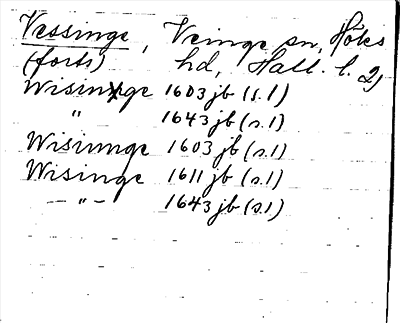 Vessinge, Veinge sn, Höks
(forts) hd, Hall. l. 2)
Wisinge 1603 jb (s.1)
" 1643 jb (s.1)
Wisinnge 1603 jb (s.1)
Wisinge 1611 jb (s.1)
— " — 1643 jb (s.1)